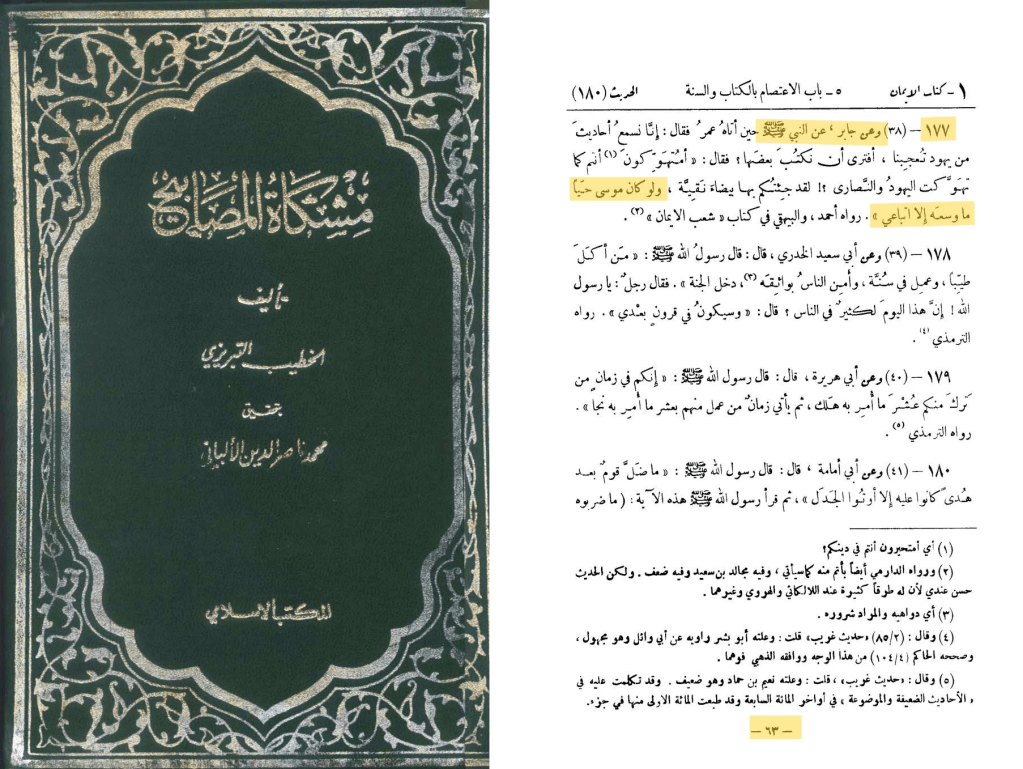 مشكاة المصابيح
تأليف
الخطيب التبريزي
بتحقيق
محمد ناصر الدين الألباني
المكتب الاسلامي
١ - كتاب الايمان ٥ - باب الاعتصام بالكتاب والسنة الحديث (١٨٠)
١٧٧ – (٣٨) وعن جابر ، عن النبي ﷺ حين أتاهُ عمرُ فقال : إنَّا نسمعُ أحاديثَ
من يهود تُعجِبنا ، أفترى أن نكتُبَ بعضَها ؟ فقال : « أمُتَهوِّكونَ (١) أنتم كما
تهوَّكت اليهودُ والنَّصارى ؟! لقد جِئتُكم بها بيضاءَ نَقِيَّة ، ولو كان موسى حَيّاً
ما وسعَه إلا اتِّباعي » . رواه أحمد ، والبيهقي في كتاب « شعب الايمان » (٢) .
١٧٨ – (٣٩) وعن أبي سعيد الخدري ، قال : قال رسولُ الله ﷺ : « مَن أكلَ
طيِّباً ، وعمِل في سُنَّة ، وأمِن الناسُ بوائِقَه (٣) ، دخل الجنة » . فقال رجلٌ : يا رسول
الله ! إنَّ هذا اليومَ لكثيرٌ في الناس ؟ قال : « وسيكونُ في قرونٍ بعْدي » . رواه
الترمذي (٤) .
١٧٩ – (٤٠) وعن أبي هريرة ، قال : قال رسول الله ﷺ : « إنكم في زمانٍ من
تَركَ منكم عُشْرَ ما أُمِر به هلك ، ثم يأتي زمانٌ من عمل منهم بعشر ما أُمِر به نجا » .
رواه الترمذي (٥) .
١٨٠ – (٤١) وعن أبي أمامة ، قال : قال رسول الله ﷺ : « ما ضلَّ قومٌ بعد
هُدىً كانوا عليه إلا أُوتُوا الجَدَل » ، ثم قرأ رسول الله ﷺ هذه الآية : ( ما ضربوه
(١) أي أمتحيرون أنتم في دينكم؟
(٢) ورواه الدارمي أيضاً بأتم منه كما سيأتي ، وفيه مجالد بن سعيد وفيه ضعف . ولكن الحديث
حسن عندي لأن له طرقاً كثيرة عند اللالكائي والهروي وغيرهما .
(٣) أي دواهيه والمراد شروره .
(٤) وقال : (٨٥/٢) «حديث غريب» قلت : وعلته أبو بشر راويه عن أبي وائل وهو مجهول ،
وصححه الحاكم (١٠٤/٤) من هذا الوجه ووافقه الذهبي فوهما .
(٥) وقال : «حديث غريب» ، قلت : وعلته نعيم بن حماد وهو ضعيف . وقد تكلمت عليه في
« الأحاديث الضعيفة والموضوعة » في أواخر المائة السابعة وقد طبعت المائة الاولى منها في جزء .
– ٦٣ –